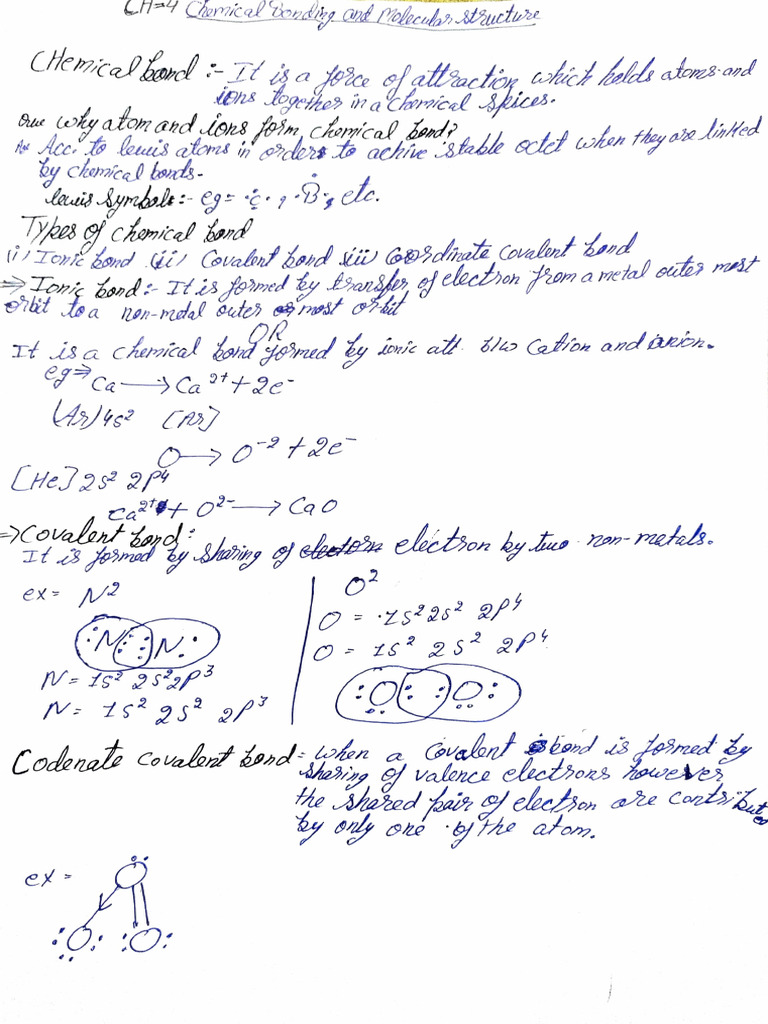 CH=4 Chemical Bonding and Molecular structure
CHemical bond :- It is a force of attraction which holds atoms and
ions together in a chemical spices.
Que why atom and ions form chemical bond?
Ans Acc. to lewis atoms in orders to achive istable octet when they are linked
by chemical bonds.
lewis Symbols:- eg= ·C·, ·B·, etc.
Types of chemical bond
(i) Ionic bond (ii) Covalent bond (iii) Coordinate covalent bond
⇒ Ionic bond :- It is formed by transfer of electron from a metal outer most
orbit to a non-metal outer most orbit
OR
It is a chemical bond formed by ionic att. b/w Cation and anion.
eg⇒ Ca → Ca²⁺ + 2e⁻
(Ar)4s² [Ar]
O → O⁻² + 2e⁻
[He] 2s² 2P⁴
Ca²⁺ + O²⁻ → CaO
⇒ Covalent bond:
It is formed by sharing of electron by two non-metals.
ex = N²
:N:::N:
N = 1s² 2s²2P³
N = 1s² 2s² 2P³
O²
O = 1s² 2s² 2P⁴
O = 1s² 2s² 2P⁴
:O: :O:
Codenate covalent bond = when a covalent bond is formed by
sharing of valence electrons however
the shared pair of electron are contributed
by only one of the atom.
ex =
O
O O